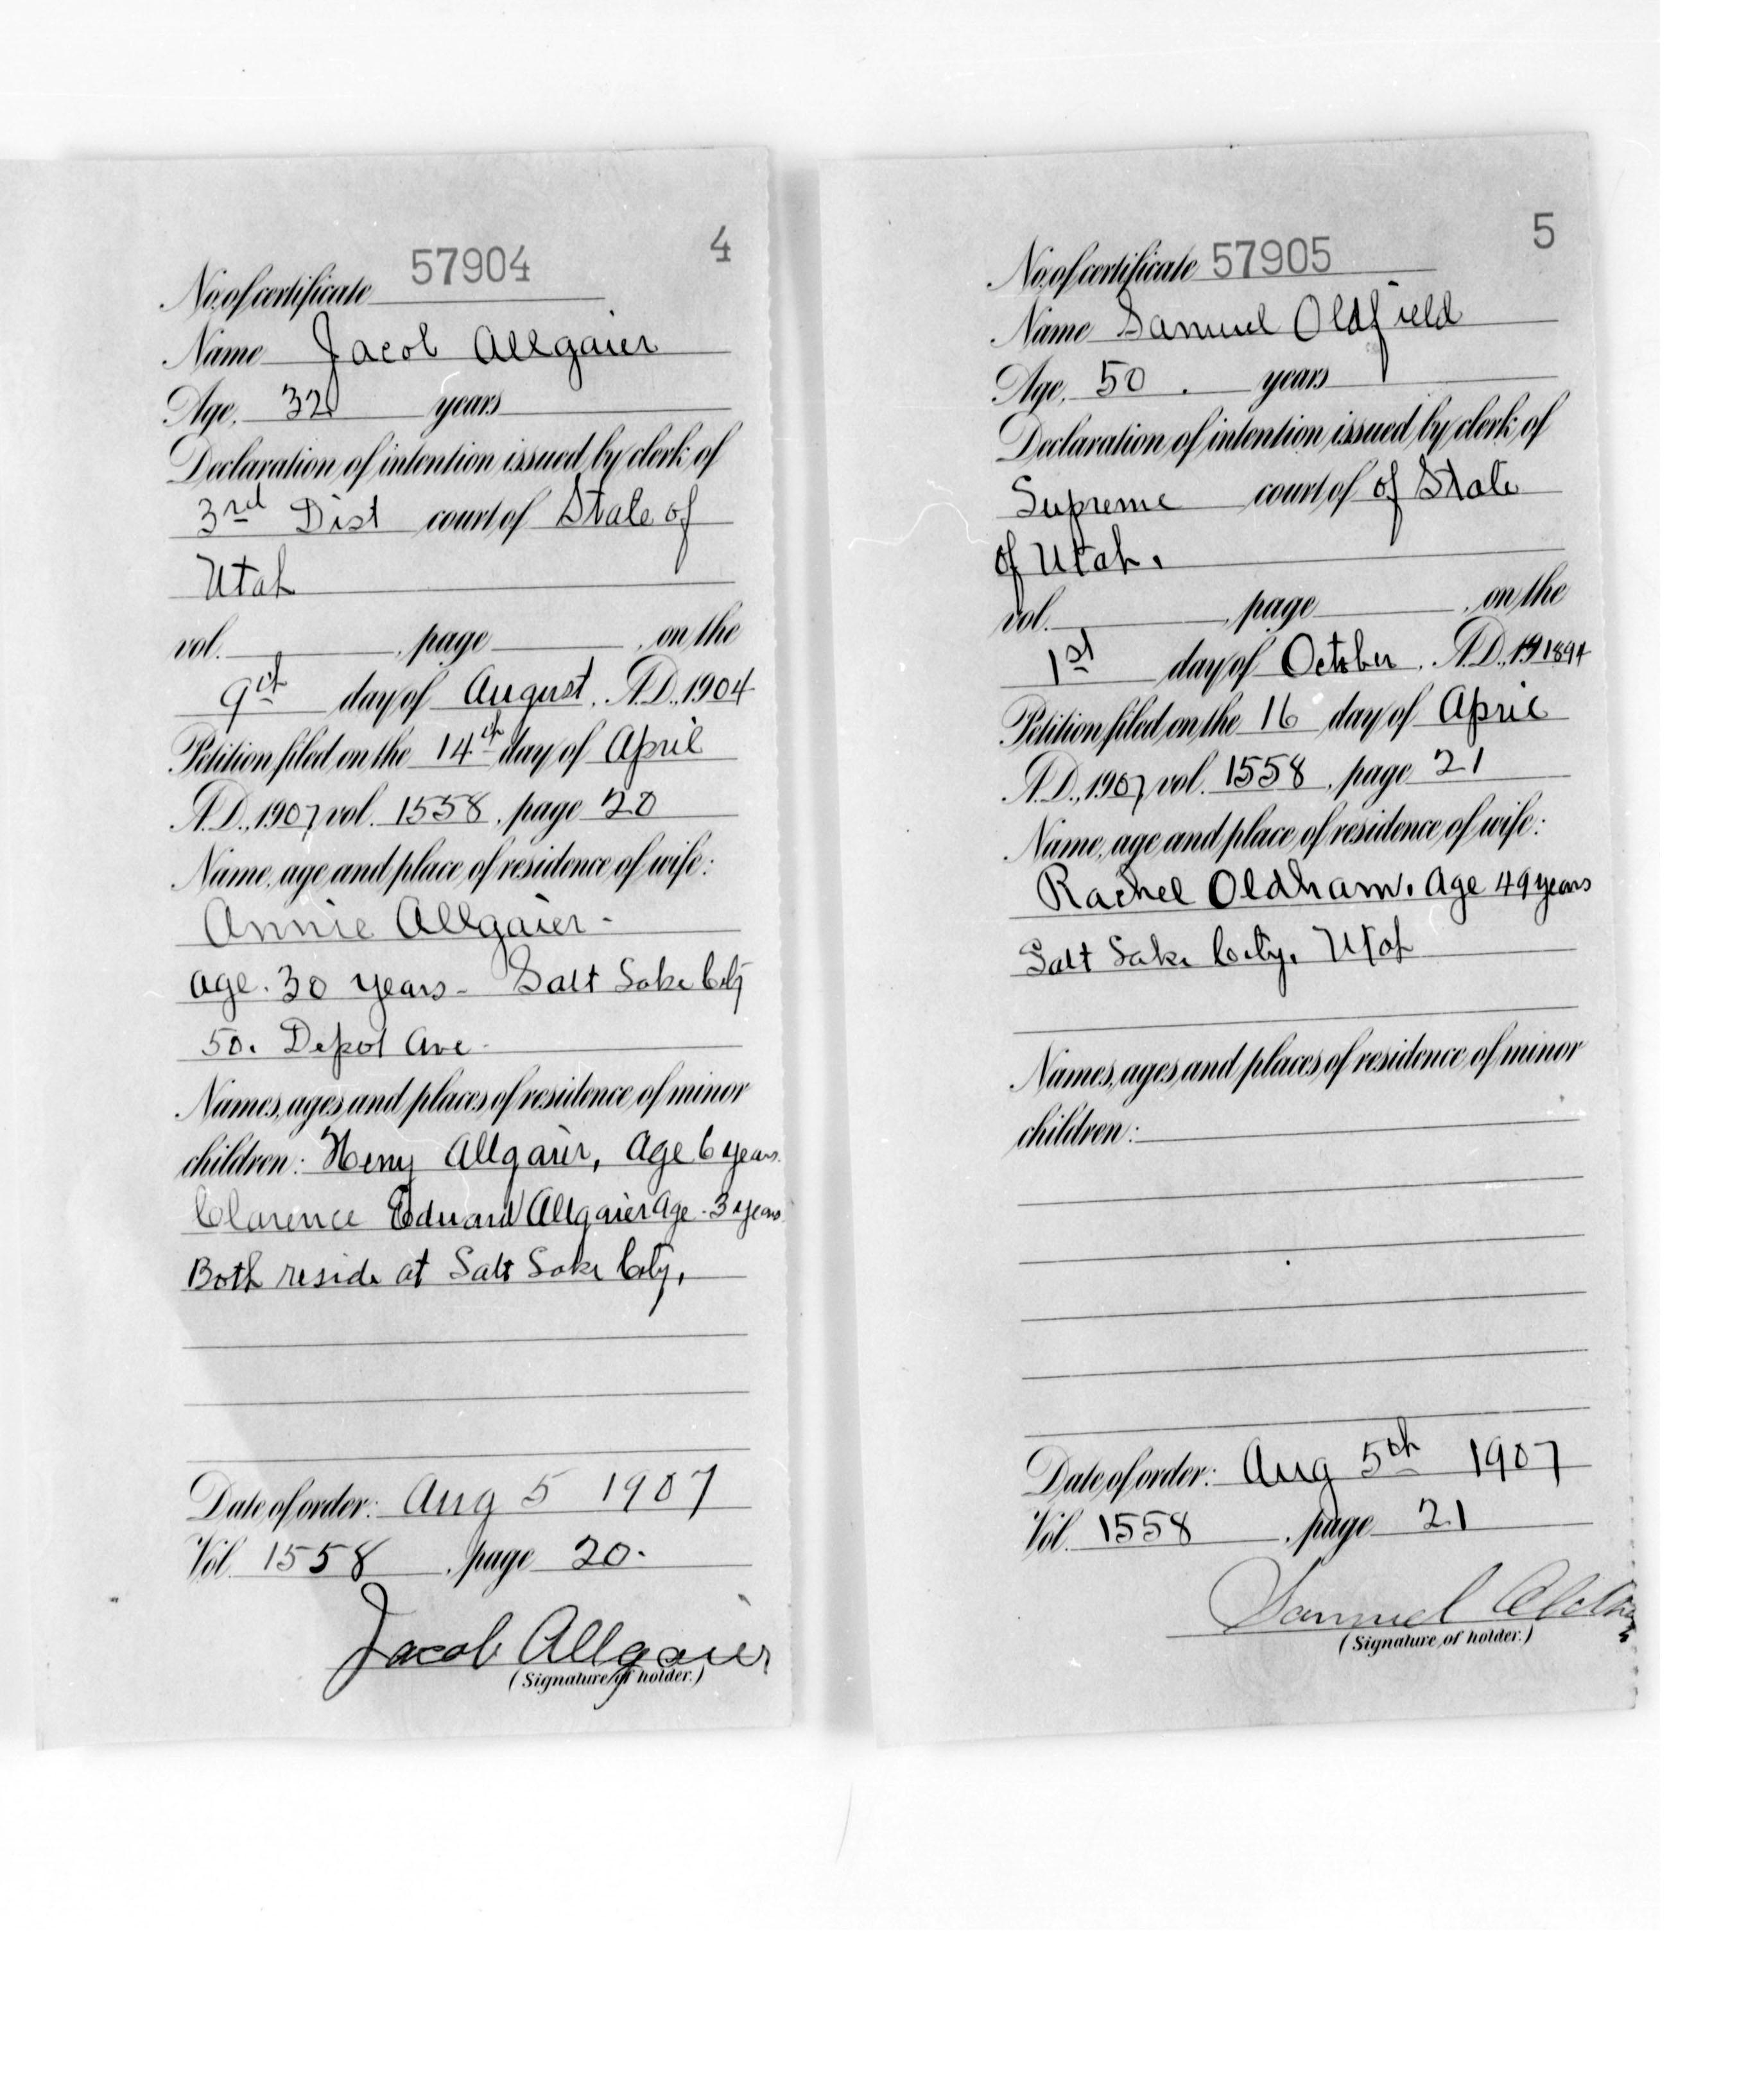 4
No. of certificate 57904
Name Jacob Allgaier
Age, 32 years
Declaration of intention issued by clerk of
3rd Dist court of State of
Utah
vol. , page , on the
9th day of August, A.D., 1904
Petition filed on the 14th day of April
A.D., 1907 vol. 1558, page 20
Name, age and place of residence of wife:
Annie Allgaier -
age. 30 years - Salt Lake City
50. Depot Ave.
Names, ages and places of residence of minor
children: Henry Allgaier, Age 6 years.
Clarence Edward Allgaier Age. 3 years.
Both reside at Salt Lake City,
Date of order: Aug 5 1907
Vol. 1558, page 20.
Jacob Allgaier
(Signature of holder.)
5
No. of certificate 57905
Name Samuel Oldfield
Age, 50. years
Declaration of intention issued by clerk of
Supreme court of of State
of Utah.
vol. , page , on the
1st day of October, A.D., 19 1894
Petition filed on the 16 day of April
A.D., 1907 vol. 1558, page 21
Name, age and place of residence of wife:
Rachel Oldham. Age 49 years
Salt Lake City, Utah
Names, ages, and places of residence of minor
children:
Date of order: Aug 5th 1907
Vol. 1558, page 21
Samuel
(Signature of holder.)